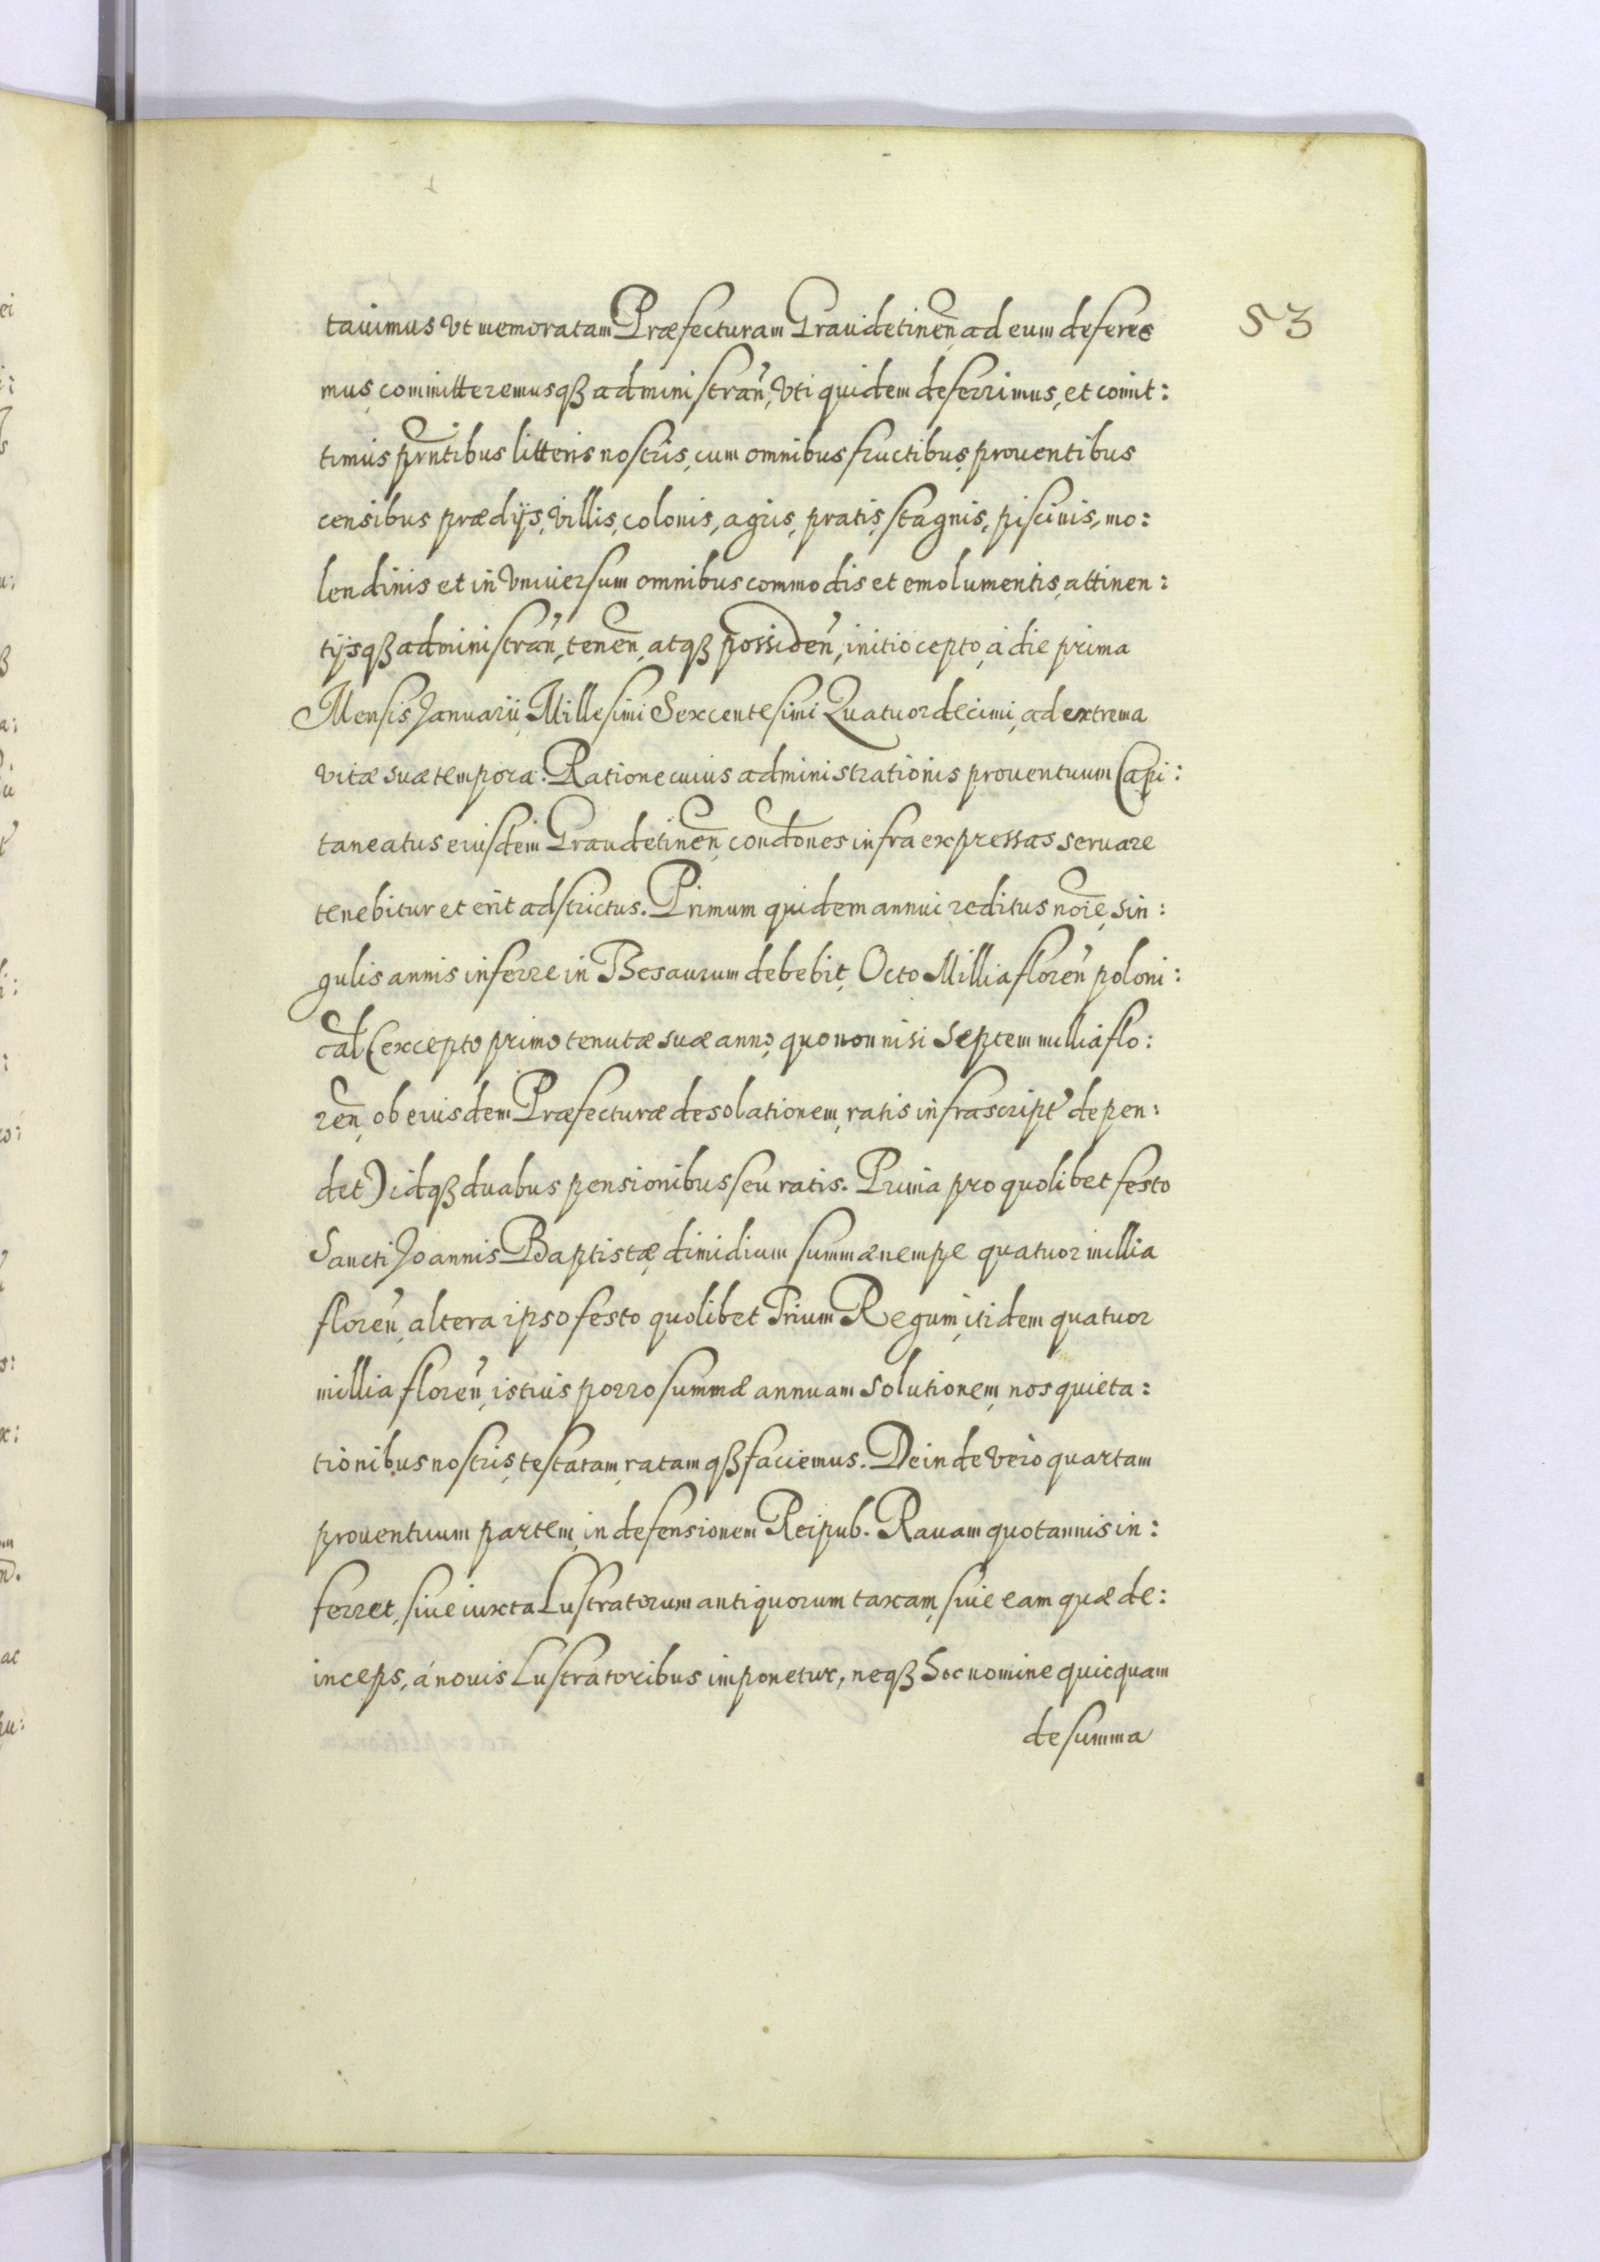 53
tauimus vt memoratam Præfecturam Graudetineñ, ad eum deferre
mus, committeremusqß administrañ, vti quidem deferrimus, et comit:
timus prñtibus litteris nostris, cum omnibus fructibus, prouentibus
censibus prædijs, villis, colonis, agris, pratis, stagnis, piscinis, mo:
lendinis et in vniuersum omnibus commodis et emolumentis, attinen:
tijsqß administrañ, teneñ, atqß possideñ, initio cepto, à die prima
Mensis Januarij, Millesimi Sexcentesimi Quatuordecimi, ad extrema
vitæ suæ tempora. Ratione cuius administrationis prouentuum Capi:
taneatus eiusdem Graudetineñ, condones infra expressas seruare
tenebitur et erit adstrictus. Primum quidem annui reditus noie, sin:
gulis annis inferre in Thesaurum debebit, Octo Millia floreñ poloni:
cal (excepto primo tenutæ suæ anno, quo non nisi septem millia flo:
reñ, ob eiusdem Præfecturæ desolationem, ratis infrascript depen:
det) idqß duabus pensionibus seu ratis. Prima pro quolibet festo
Sancti Joannis Baptistæ, dimidium summæ nempe quatuor millia
floreñ, altera ipso festo quolibet Trium Regum, itidem quatuor
millia floreñ, istius porro summæ annuam solutionem, nos quieta:
tionibus nostris, testatam, ratamqß faciemus. Deinde verò quartam
prouentuum partem, in defensionem Reipub. Rauam quotannis in:
ferret, siue iuxta Lustratorum antiquorum taxam, siue eam quæ de:
inceps, á nouis Lustratoribus imponetur, neqß hoc nomine quicquam
de summa